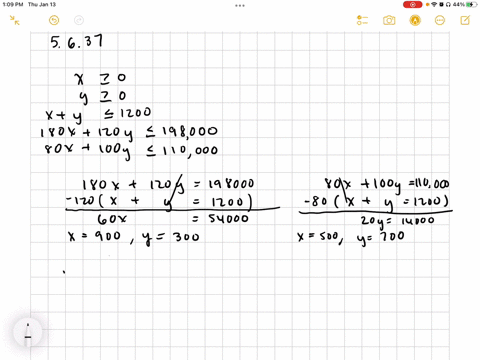 1:09 PM Thu Jan 13
44%
5.6.37
x ≥ 0
y ≥ 0
x + y ≤ 1200
180x + 120y ≤ 198,000
80x + 100y ≤ 110,000
180x + 120y = 198000
-120(x + y = 1200)
60x = 54000
x = 900, y = 300
80x + 100y = 110,000
-80(x + y = 1200)
20y = 14000
x = 500, y = 700